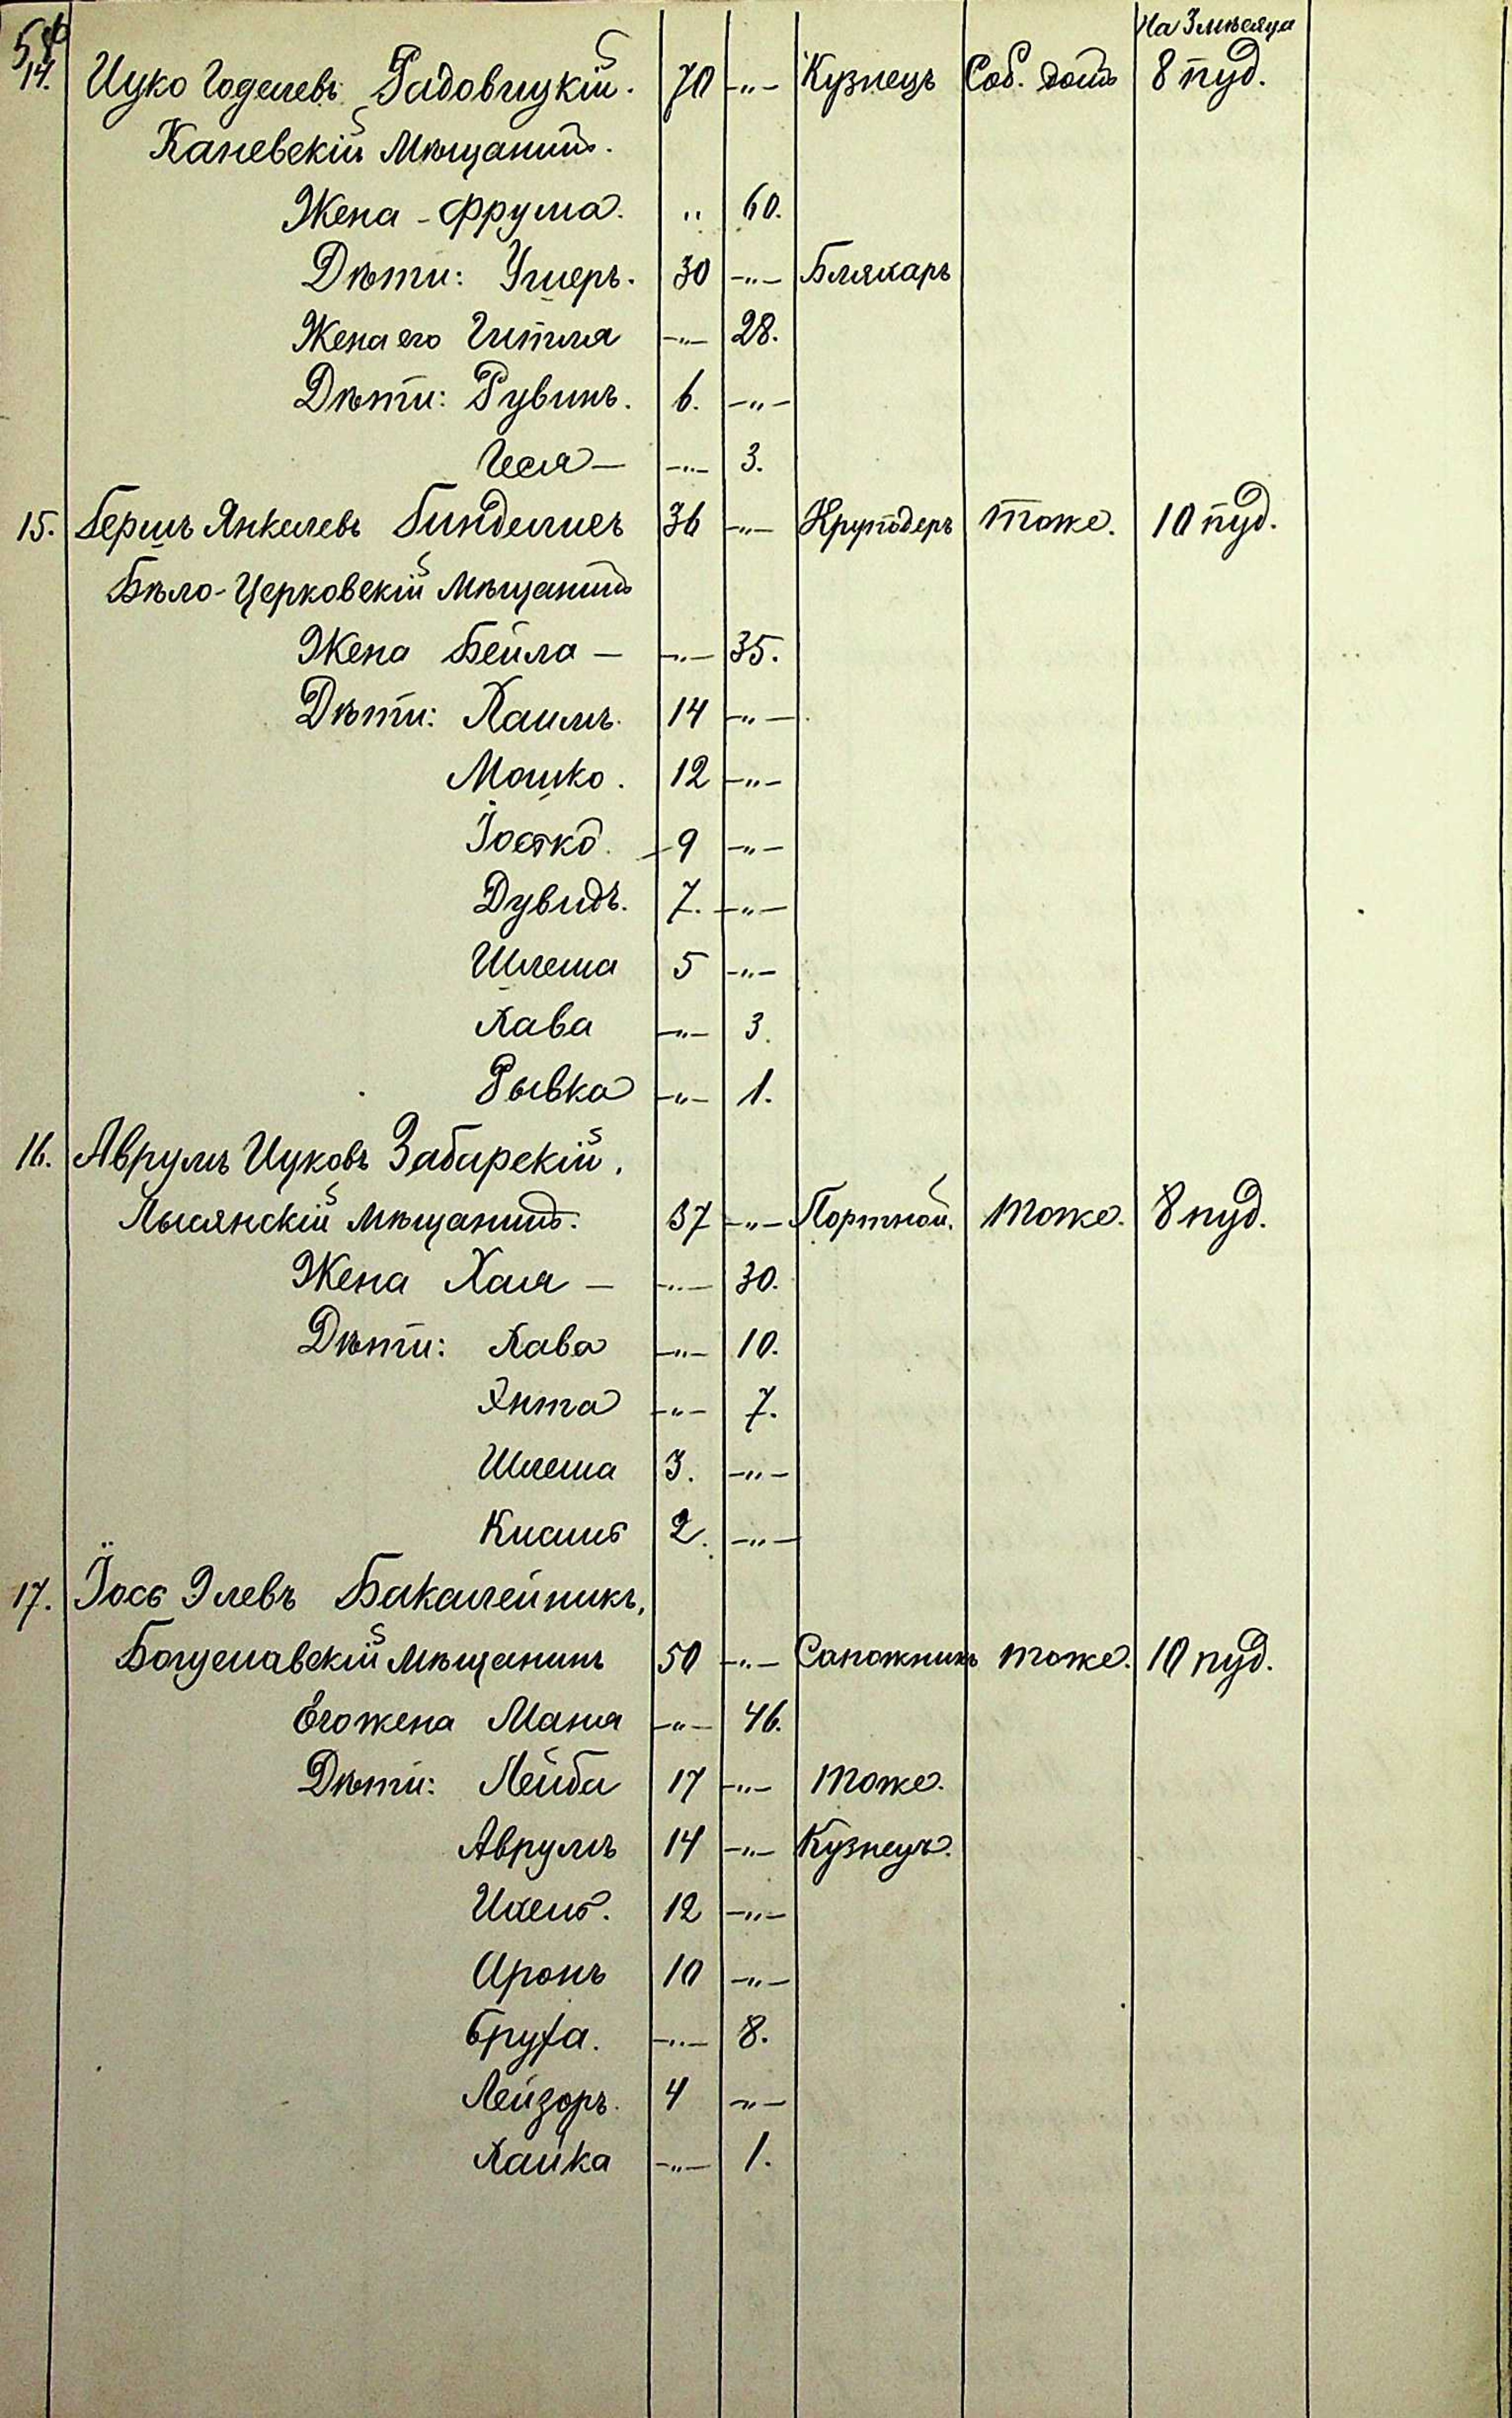 На 3 мѣсяца
14. Ицко Годелевъ Радовицкій. 70 -"- Кузнецъ Соб. домъ 8 пуд.
Каневскій Мѣщанинъ.
Жена - Фрума. " 60.
Дѣти: Ушеръ. 30 -"- Бляхарь
Жена его Гитля -"- 28.
Дѣти: Рувинъ. 6. -"-
Неся - -"- 3.
15. Бершъ Янкелевъ 36 -"- Круподеръ тоже. 10 пуд.
Бѣло-Церковскій Мѣщанинъ
Жена Бейла - -"- 35.
Дѣти: Хаимъ. 14 -"-
Мошко. 12 -"-
9 -"-
Дувидъ. 7. -"-
Шлема 5 -"-
Хава -"- 3.
Рывка -"- 1.
16. Аврумъ Ицковъ Забарскій.
Лысянскій мѣщанинъ. 37 -"- Портной. тоже. 8 пуд.
Жена Хая - -"- 30.
Дѣти: Хава -"- 10.
Энта -"- 7.
Шлема 3. -"-
2. -"-
17. Іось Элевъ Бакалейникъ,
Богуславскій мѣщанинъ 50 -"- Сапожникъ тоже. 10 пуд.
Его жена Маня -"- 46.
Дѣти: Лейба 17 -"- тоже.
Аврумъ 14 -"- Кузнецъ.
12 -"-
Аронъ 10 -"-
Бруха. -"- 8.
Лейзоръ. 4 -"-
Хайка -"- 1.